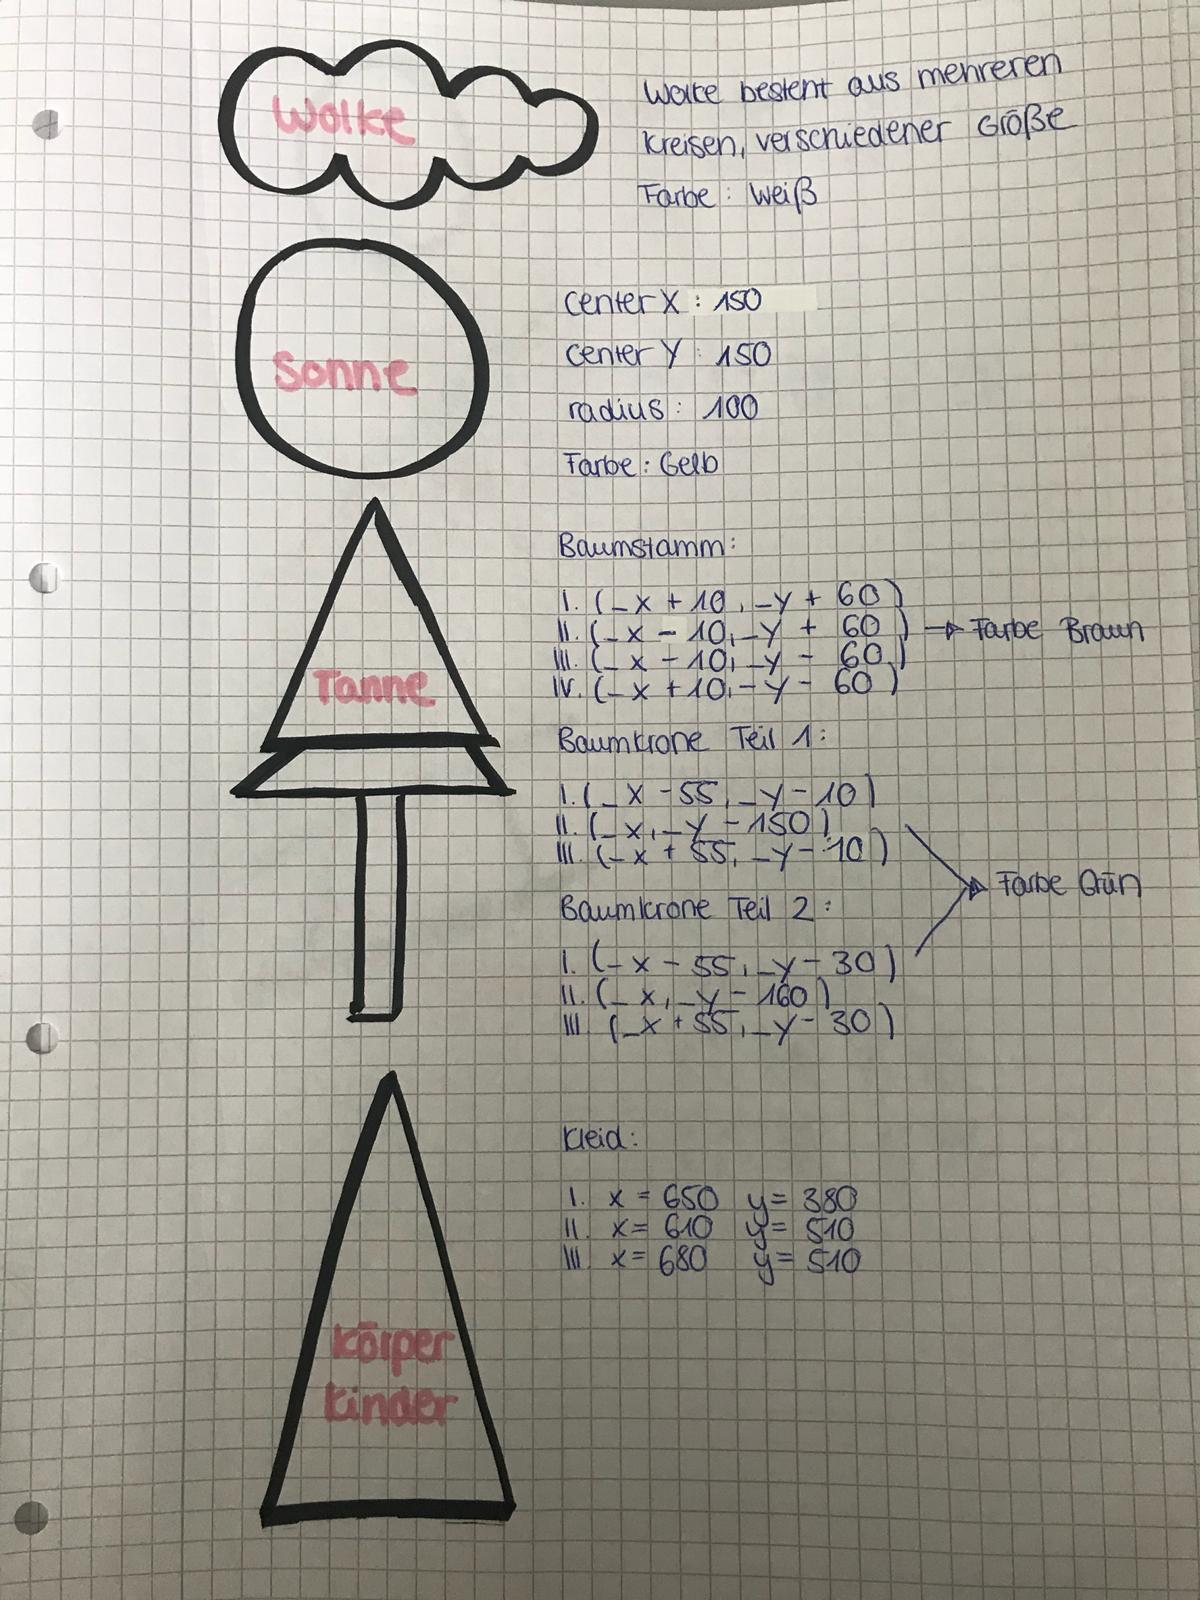 Wolke
Wolke besteht aus mehreren
Kreisen, verschiedener Größe
Farbe: Weiß
Sonne
center X : 150
center Y : 150
radius : 100
Farbe: Gelb
Tanne
Baumstamm:
I. (_x + 10, _y + 60)
II. (_x - 10, _y + 60) → Farbe Braun
III. (_x - 10, _y - 60)
IV. (_x + 10, _y - 60)
Baumkrone Teil 1:
I. (_x - 55, _y - 10)
II. (_x, _y - 150)
III. (_x + 55, _y - 10)
Farbe Grün
Baumkrone Teil 2:
I. (_x - 55, _y - 30)
II. (_x, _y - 160)
III. (_x + 55, _y - 30)
Körper
Kinder
Kleid:
I. x = 650 y = 380
II. x = 610 y = 510
III. x = 680 y = 510